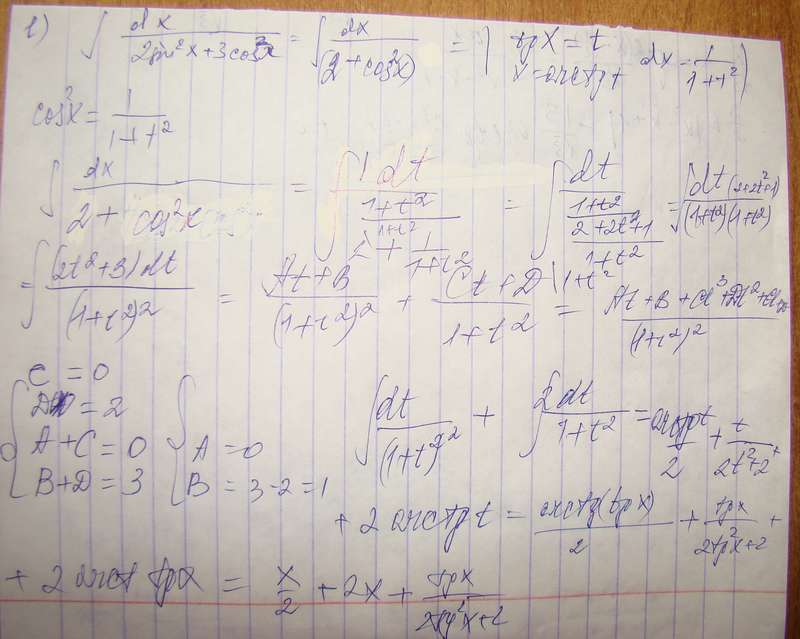 1) ∫ dx / (2sin²x+3cos²x) = ∫ dx / (2+cos²x) = | tgx = t x=arctgt dx = 1/(1+t²) |
cos²x = 1/(1+t²)
∫ dx / (2+cos²x) = ∫ (1dt/(1+t²)) / (2 + 1/(1+t²)) = ∫ (dt/(1+t²)) / ((2+2t²+1)/(1+t²)) = ∫ dt(2+2t²+1) / ((1+t²)(1+t²))
= ∫ (2t²+3)dt / (1+t²)² = (At+B)/(1+t²)² + (Ct+D)/(1+t²) |1+t² = (At+B+Ct³+Dt²+Ct+D)/(1+t²)²
C = 0
D = 2
A+C = 0 A = 0
B+D = 3 B = 3-2 = 1
∫ dt/(1+t²)² + ∫ 2dt/(1+t²) = arctgt/2 + t/(2t²+2) +
+ 2 arctg t = arctg(tgx)/2 + tgx/(2tg²x+2) +
+ 2 arct tgx = x/2 + 2x + tgx/(2tg²x+2)